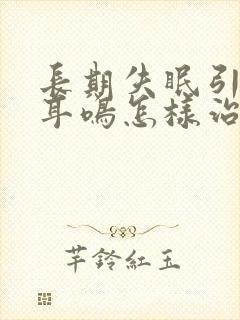 長期失眠引
耳鳴怎樣治
芊鈴紅玉